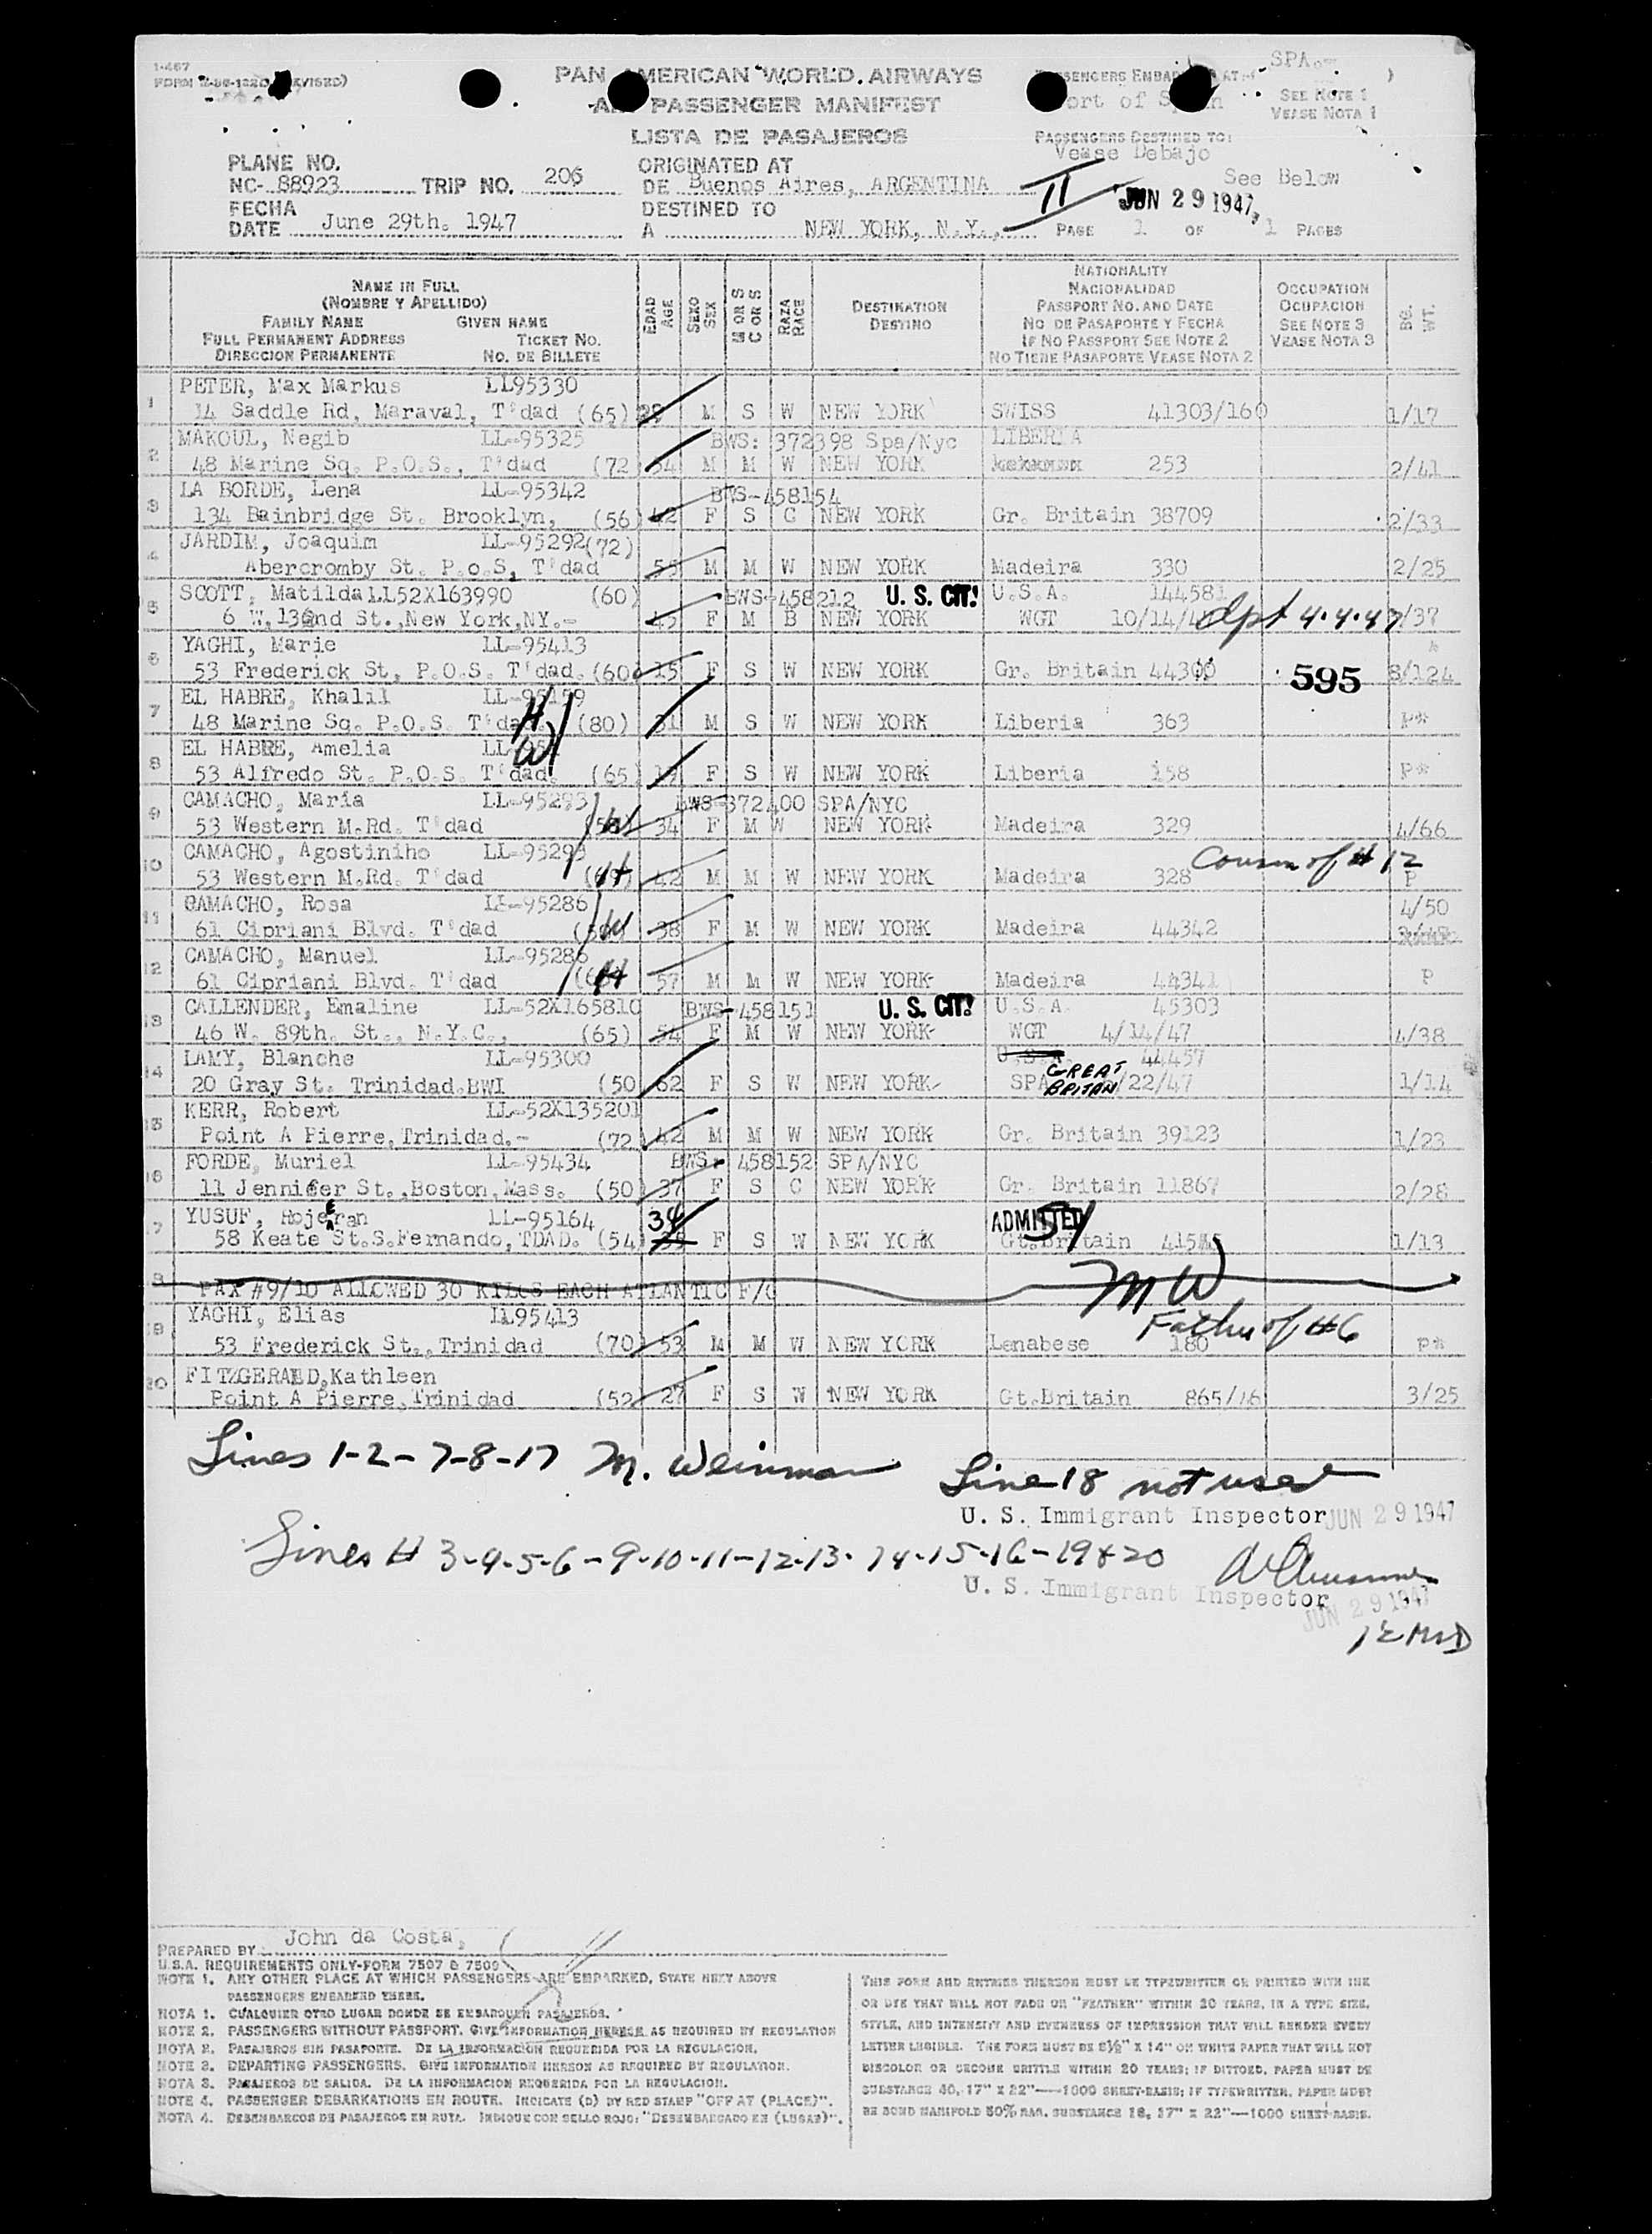 1-467
PAN AMERICAN WORLD AIRWAYS
PASSENGER MANIFEST
LISTA DE PASAJEROS
SPA.-
SEE NOTE 1
VEASE NOTA 1
PASSENGERS DESTINED TO:
Vease Debajo
See Below
PLANE NO.
NC- 88923 TRIP NO. 206
ORIGINATED AT
DE Buenos Aires, ARGENTINA
11
JUN 29 1947
FECHA
DATE June 29th. 1947
DESTINED TO
A NEW YORK, N.Y.,
PAGE 1 OF 1 PAGES
NAME IN FULL
(NOMBRE Y APELLIDO)
FAMILY NAME GIVEN NAME
FULL PERMANENT ADDRESS TICKET NO.
DIRECCION PERMANENTE NO. DE BILLETE
EDAD AGE
SEXO SEX
M OR S C OR S
RAZA RACE
DESTINATION
DESTINO
NATIONALITY
NACIONALIDAD
PASSPORT NO. AND DATE
NO DE PASAPORTE Y FECHA
IF NO PASSPORT SEE NOTE 2
NO TIENE PASAPORTE VEASE NOTA 2
OCCUPATION
OCUPACION
SEE NOTE 3
VEASE NOTA 3
BG. WT.
1 PETER, Max Markus LL95330
14 Saddle Rd, Maraval, T'dad (65) 29 M S W NEW YORK SWISS 41303/160 1/17
2 MAKOUL, Negib LL-95325 BWS: 372398 Spa/Nyc LIBERIA
48 Marine Sq. P.O.S., T'dad (72) 34 M M W NEW YORK 253 2/41
3 LA BORDE, Lena LL-95342 BWS-458154
134 Bainbridge St. Brooklyn, (56) 42 F S C NEW YORK Gr. Britain 38709 2/33
4 JARDIM, Joaquim LL-95292(72)
Abercromby St. P.o.S, T'dad 55 M M W NEW YORK Madeira 330 2/25
5 SCOTT, Matilda LL52X163990 (60) BWS-458212 U. S. CIT! U.S.A. 144581
6 W. 132nd St., New York, NY.- 45 F M B NEW YORK WGT 10/14/4 dpt 4.4.47 /37
6 YAGHI, Marie LL-95413
53 Frederick St, P.O.S. T'dad. (60) 15 F S W NEW YORK Gr. Britain 44300 595 8/124
7 EL HABRE, Khalil LL-95159
48 Marine Sq. P.O.S. T'dad. H (80) 31 M S W NEW YORK Liberia 363 P*
8 EL HABRE, Amelia LL-
53 Alfredo St. P.O.S. T'dad. W (65) 19 F S W NEW YORK Liberia 158 P*
9 CAMACHO, Maria LL-95293 BWS-372400 SPA/NYC
53 Western M.Rd. T'dad W 34 F M W NEW YORK Madeira 329 4/66
10 CAMACHO, Agostiniho LL-95293 Cousin of # 12
53 Western M.Rd. T'dad H 42 M M W NEW YORK Madeira 328 P
11 CAMACHO, Rosa LL-95286 4/50
61 Cipriani Blvd. T'dad W 38 F M W NEW YORK Madeira 44342
12 CAMACHO, Manuel LL-95286
61 Cipriani Blvd. T'dad H 57 M M W NEW YORK Madeira 44341 P
13 CALLENDER, Emaline LL-52X165810 BWS-458151 U. S. CIT! U.S.A. 45303
46 W. 89th. St., N.Y.C., (65) 54 F M W NEW YORK WGT 4/14/47 4/38
14 LAMY, Blanche LL-95300 U.S.A. 44457
20 Gray St. Trinidad.BWI (50) 62 F S W NEW YORK SPA GREAT BRITAN /22/47 1/14
15 KERR, Robert LL-52X135201
Point A Pierre, Trinidad.- (72) 42 M M W NEW YORK Gr. Britain 39123 1/23
16 FORDE, Muriel LL-95434 BWS- 458152 SPA/NYC
11 Jennifer St., Boston, Mass. (50) 37 F S C NEW YORK Gr. Britain 11867 2/28
17 YUSUF, Rojeran LL-95164 34 ADMITTED
58 Keate St.S.Fernando, TDAD. (54) 35 F S W NEW YORK Gt.Britain 1/13
PAX #9/10 ALLOWED 30 KILOS EACH ATLANTIC F/C MW
19 YAGHI, Elias LL95413 Father of #6
53 Frederick St., Trinidad (70) 53 M M W NEW YORK Lenabese 180 P*
20 FITZGERALD, Kathleen
Point A Pierre, Trinidad (52) 27 F S W NEW YORK Gt.Britain 865/46 3/25
Lines 1-2-7-8-17 M. Weinman
Line 18 not used
U. S. Immigrant Inspector JUN 29 1947
Lines # 3-4-5-6-9-10-11-12-13-14-15-16-19 & 20
U. S. Immigrant Inspector
JUN 29 1947
PREPARED BY John da Costa,
U.S.A. REQUIREMENTS ONLY-FORM 7507 & 7509
NOTE 1. ANY OTHER PLACE AT WHICH PASSENGERS ARE EMBARKED, STATE NEXT ABOVE
PASSENGERS EMBARKED THERE.
NOTA 1. CUALQUIER OTRO LUGAR DONDE SE EMBARQUEN PASAJEROS.
NOTE 2. PASSENGERS WITHOUT PASSPORT. GIVE INFORMATION HEREON AS REQUIRED BY REGULATION
NOTA 2. PASAJEROS SIN PASAPORTE. DE LA INFORMACION REQUERIDA POR LA REGULACION.
NOTE 3. DEPARTING PASSENGERS. GIVE INFORMATION HEREON AS REQUIRED BY REGULATION.
NOTA 3. PASAJEROS DE SALIDA. DE LA INFORMACION REQUERIDA POR LA REGULACION.
NOTE 4. PASSENGER DEBARKATIONS EN ROUTE. INDICATE (D) BY RED STAMP "OFF AT (PLACE)".
NOTA 4. DESEMBARCOS DE PASAJEROS EN RUTA. INDIQUE CON SELLO ROJO: "DESEMBARCADO EN (LUGAR)".
THIS FORM AND ENTRIES THEREON MUST BE TYPEWRITTEN OR PRINTED WITH INK
OR DYE THAT WILL NOT FADE OR "FEATHER" WITHIN 20 YEARS, IN A TYPE SIZE,
STYLE, AND INTENSITY AND EVENNESS OF IMPRESSION THAT WILL RENDER EVERY
LETTER LEGIBLE. THE FORM MUST BE 8½" X 14" ON WHITE PAPER THAT WILL NOT
DISCOLOR OR BECOME BRITTLE WITHIN 20 YEARS; IF DITTOED, PAPER MUST BE
SUBSTANCE 40, 17" X 22"—1000 SHEET-BASIS; IF TYPEWRITTEN, PAPER MUST
BE BOND MANIFOLD 50% RAG. SUBSTANCE 18, 17" X 22"—1000 SHEET-BASIS.